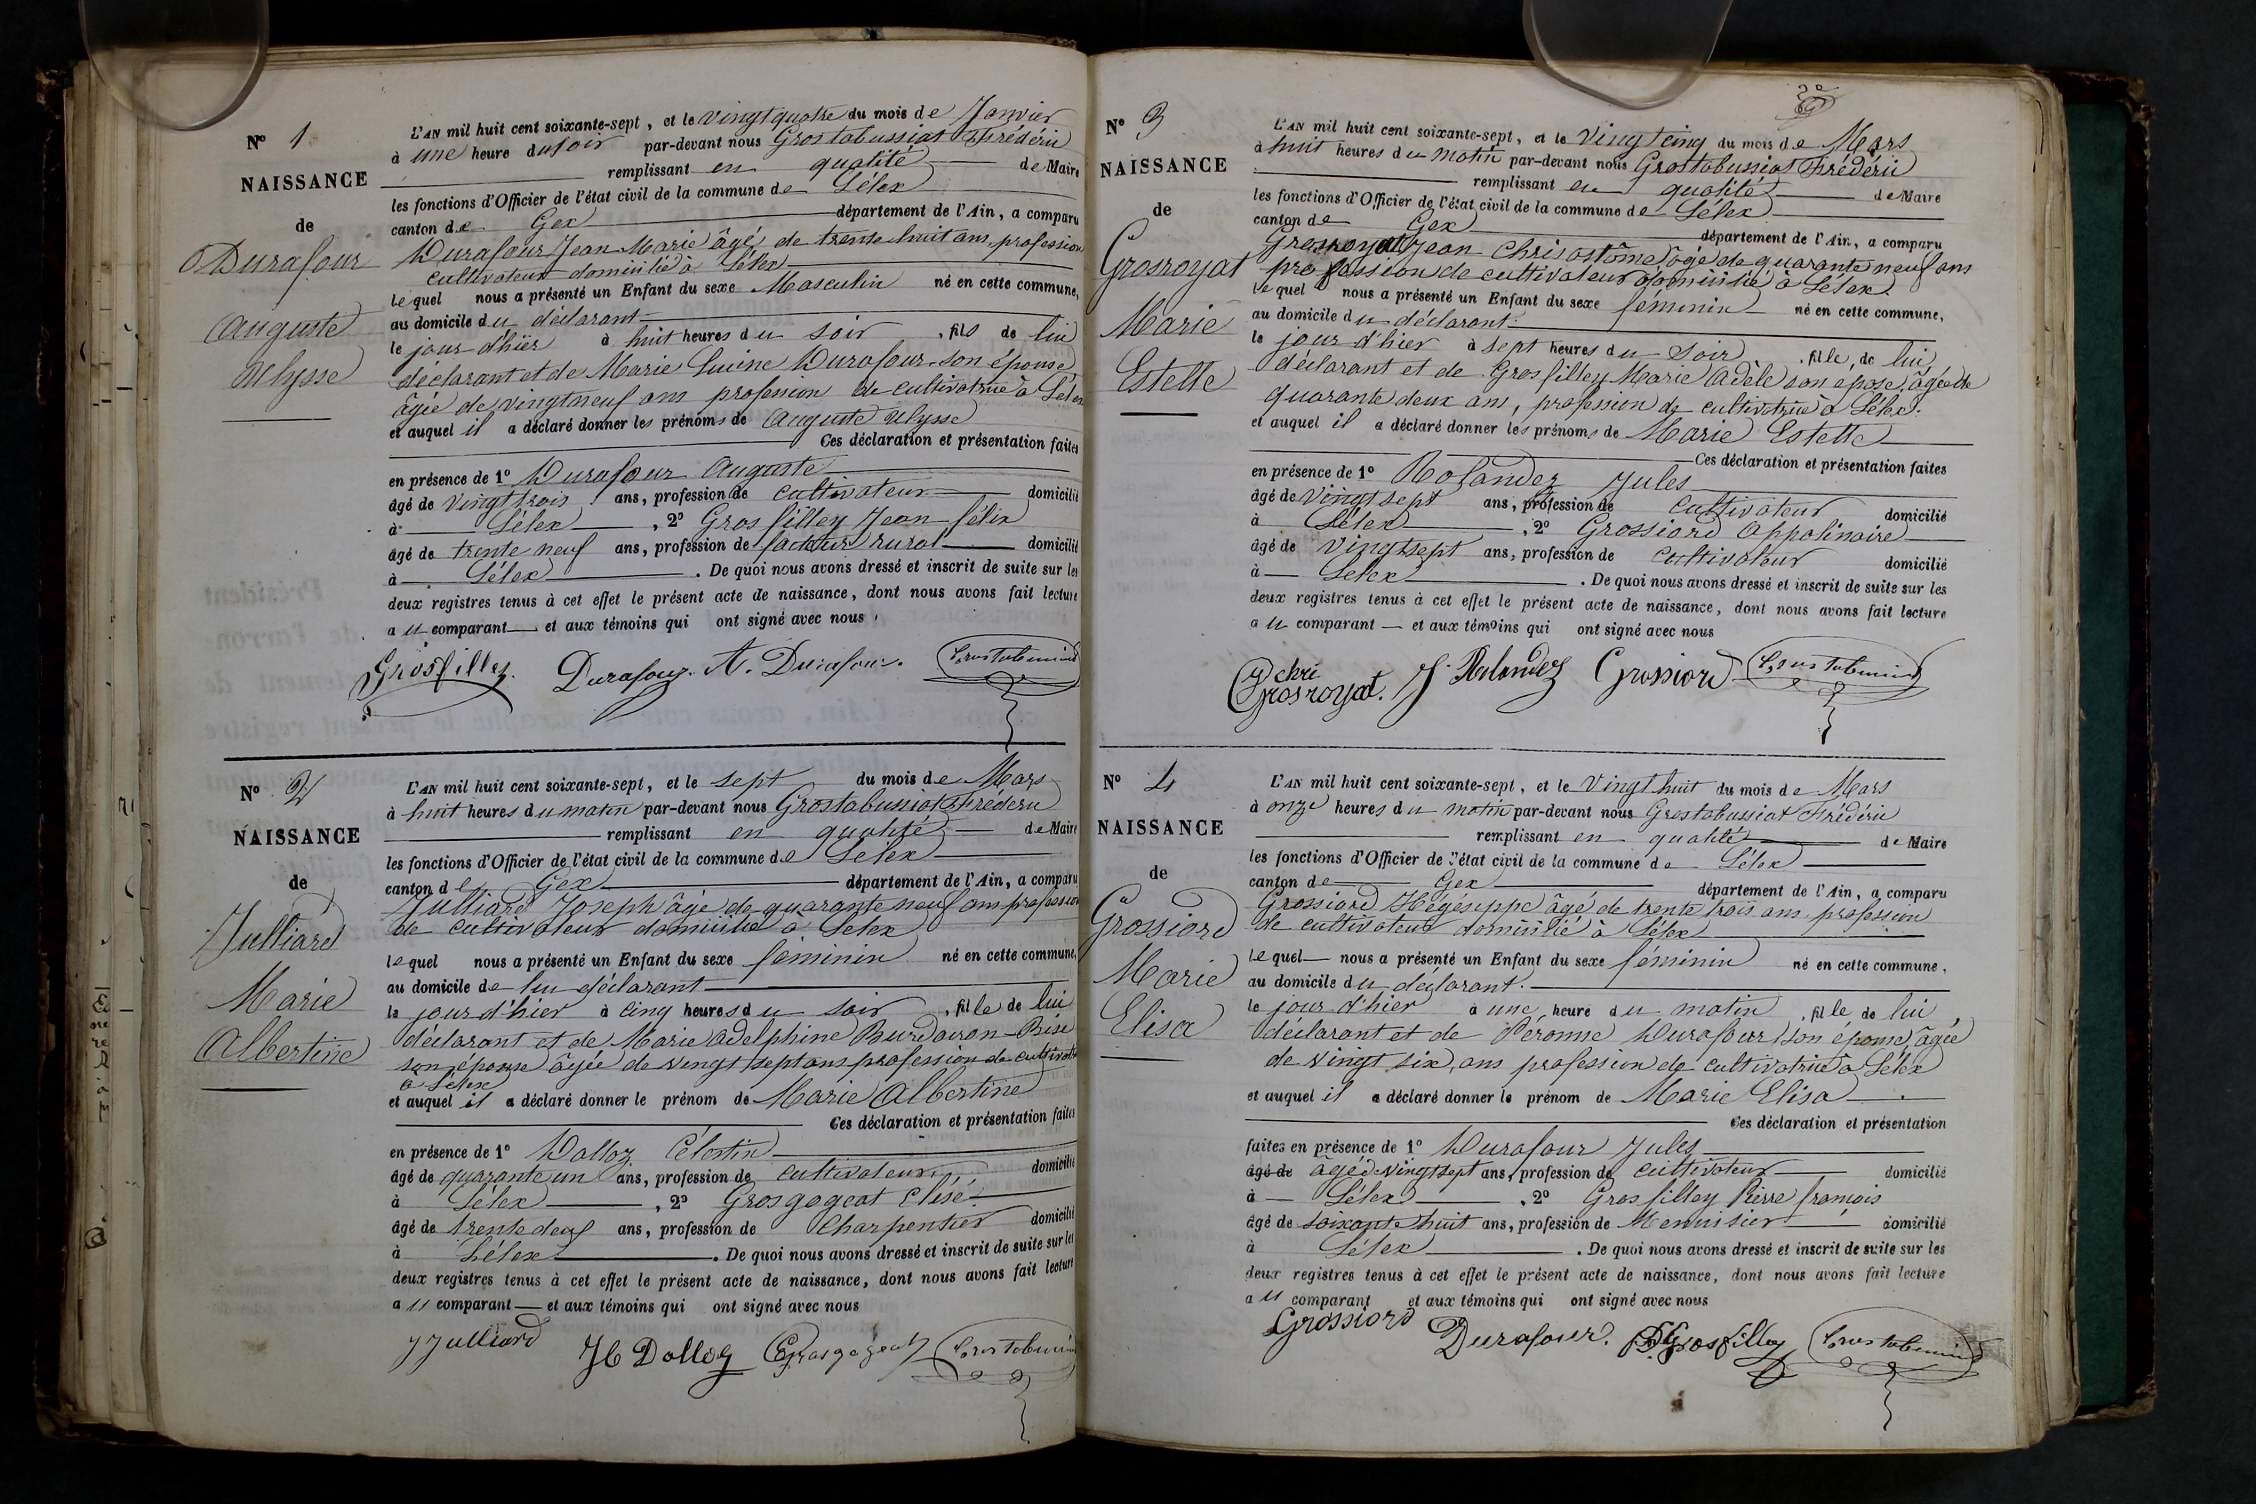 N° 1
NAISSANCE
de
Durafour
Auguste
Ulysse
L'AN mil huit cent soixante-sept, et le vingt quatre du mois de Janvier
à une heure du soir par-devant nous Grostabussiat Frédéric
remplissant en qualité de Maire
les fonctions d'Officier de l'état civil de la commune de Lélex
canton de Gex département de l'Ain, a comparu
Durafour Jean Marie âgé de trente huit ans profession
cultivateur domicilié à Lélex
lequel nous a présenté un Enfant du sexe Masculin né en cette commune,
au domicile du déclarant
le jour d'hier à huit heures du soir, fils de lui
déclarant et de Marie Durafour son épouse
âgée de vingt neuf ans profession de cultivatrice à Lélex
et auquel il a déclaré donner les prénoms de Auguste Ulysse
Ces déclaration et présentation faites
en présence de 1° Durafour Auguste
âgé de vingt trois ans, profession de cultivateur domicilié
à Lélex, 2° Grosfilley Jean félix
âgé de trente neuf ans, profession de facteur rural domicilié
à Lélex. De quoi nous avons dressé et inscrit de suite sur les
deux registres tenus à cet effet le présent acte de naissance, dont nous avons fait lecture
au comparant et aux témoins qui ont signé avec nous
Grosfilley. Durafour. A. Durafour. Grostabussiat
N° 2
NAISSANCE
de
Julliard
Marie
Albertine
L'AN mil huit cent soixante-sept, et le sept du mois de Mars
à huit heures du matin par-devant nous Grostabussiat Frédéric
remplissant en qualité de Maire
les fonctions d'Officier de l'état civil de la commune de Lélex
canton de Gex département de l'Ain, a comparu
Julliard Joseph âgé de quarante neuf ans profession
de cultivateur domicilié à Lélex
lequel nous a présenté un Enfant du sexe féminin né en cette commune,
au domicile de lui déclarant
le jour d'hier à cinq heures du soir, fille de lui
déclarant et de Marie Adelphine Burdairon-Bise
son épouse âgée de vingt sept ans profession de cultivatrice
à Lélex
et auquel il a déclaré donner le prénom de Marie Albertine
Ces déclaration et présentation faites
en présence de 1° Dalloz Célestin
âgé de quarante un ans, profession de cultivateur domicilié
à Lélex, 2° Grosgogeat Elisé
âgé de trente deux ans, profession de Charpentier domicilié
à Lélex. De quoi nous avons dressé et inscrit de suite sur les
deux registres tenus à cet effet le présent acte de naissance, dont nous avons fait lecture
au comparant et aux témoins qui ont signé avec nous
J Julliard JC Dalloz E Grosgogeat Grostabussiat
N° 3
NAISSANCE
de
Grosroyat
Marie
Estelle
L'AN mil huit cent soixante-sept, et le vingt cinq du mois de Mars
à huit heures du matin par-devant nous Grostabussiat Frédéric
remplissant en qualité de Maire
les fonctions d'Officier de l'état civil de la commune de Lélex
canton de Gex département de l'Ain, a comparu
Grosroyat Jean Chrisostôme âgé de quarante neuf ans
profession de cultivateur domicilié à Lélex.
lequel nous a présenté un Enfant du sexe féminin né en cette commune,
au domicile du déclarant.
le jour d'hier à sept heures du soir, fille de lui
déclarant et de Grosfilley Marie Adèle son épose, âgée de
quarante deux ans, profession de cultivatrice à Lélex.
et auquel il a déclaré donner les prénoms de Marie Estelle
Ces déclaration et présentation faites
en présence de 1° Rolandez Jules
âgé de vingt sept ans, profession de cultivateur domicilié
à Lélex, 2° Grossiord Appolinaire
âgé de vingt sept ans, profession de cultivateur domicilié
à Lélex. De quoi nous avons dressé et inscrit de suite sur les
deux registres tenus à cet effet le présent acte de naissance, dont nous avons fait lecture
au comparant et aux témoins qui ont signé avec nous
chri Grosroyat. J. Rolandez Grossiord Grostabussiat
N° 4
NAISSANCE
de
Grossiord
Marie
Elisa
L'AN mil huit cent soixante-sept, et le vingt huit du mois de Mars
à onze heures du matin par-devant nous Grostabussiat Frédéric
remplissant en qualité de Maire
les fonctions d'Officier de l'état civil de la commune de Lélex
canton de Gex département de l'Ain, a comparu
Grossiord Hégésippe âgé de trente trois ans profession
de cultivateur domicilié à Lélex
lequel nous a présenté un Enfant du sexe féminin né en cette commune,
au domicile du déclarant.
le jour d'hier à une heure du matin, fille de lui,
déclarant et de Péronne Durafour son épouse, âgée
de vingt six ans profession de cultivatrice à Lélex
et auquel il a déclaré donner le prénom de Marie Elisa
Ces déclaration et présentation
faites en présence de 1° Durafour Jules
âgé de âgé de vingt sept ans, profession de cultivateur domicilié
à Lélex, 2° Grosfilley Pierre françois
âgé de soixante huit ans, profession de Menuisier domicilié
à Lélex. De quoi nous avons dressé et inscrit de suite sur les
deux registres tenus à cet effet le présent acte de naissance, dont nous avons fait lecture
au comparant et aux témoins qui ont signé avec nous
Grossiord Durafour. Grosfilley Grostabussiat